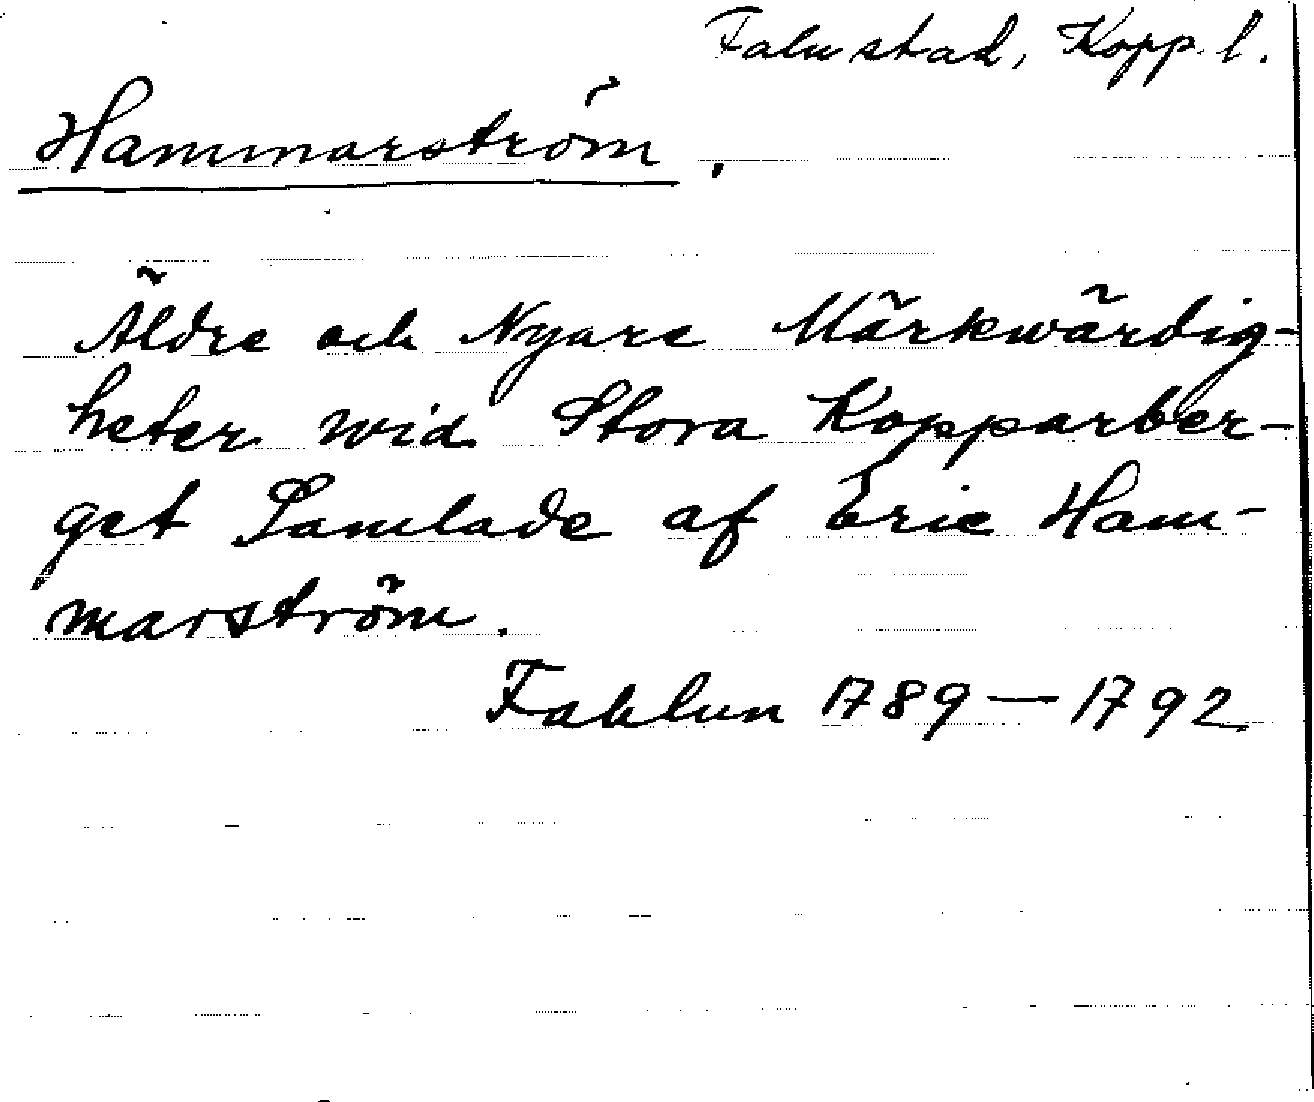 Falu stad, Kopp. l.
Hammarström.
Äldre och Nyare Märkwärdig-
heter wid Stora Kopparber-
get Samlade af Eric Ham-
marström.
Fahlun 1789—1792